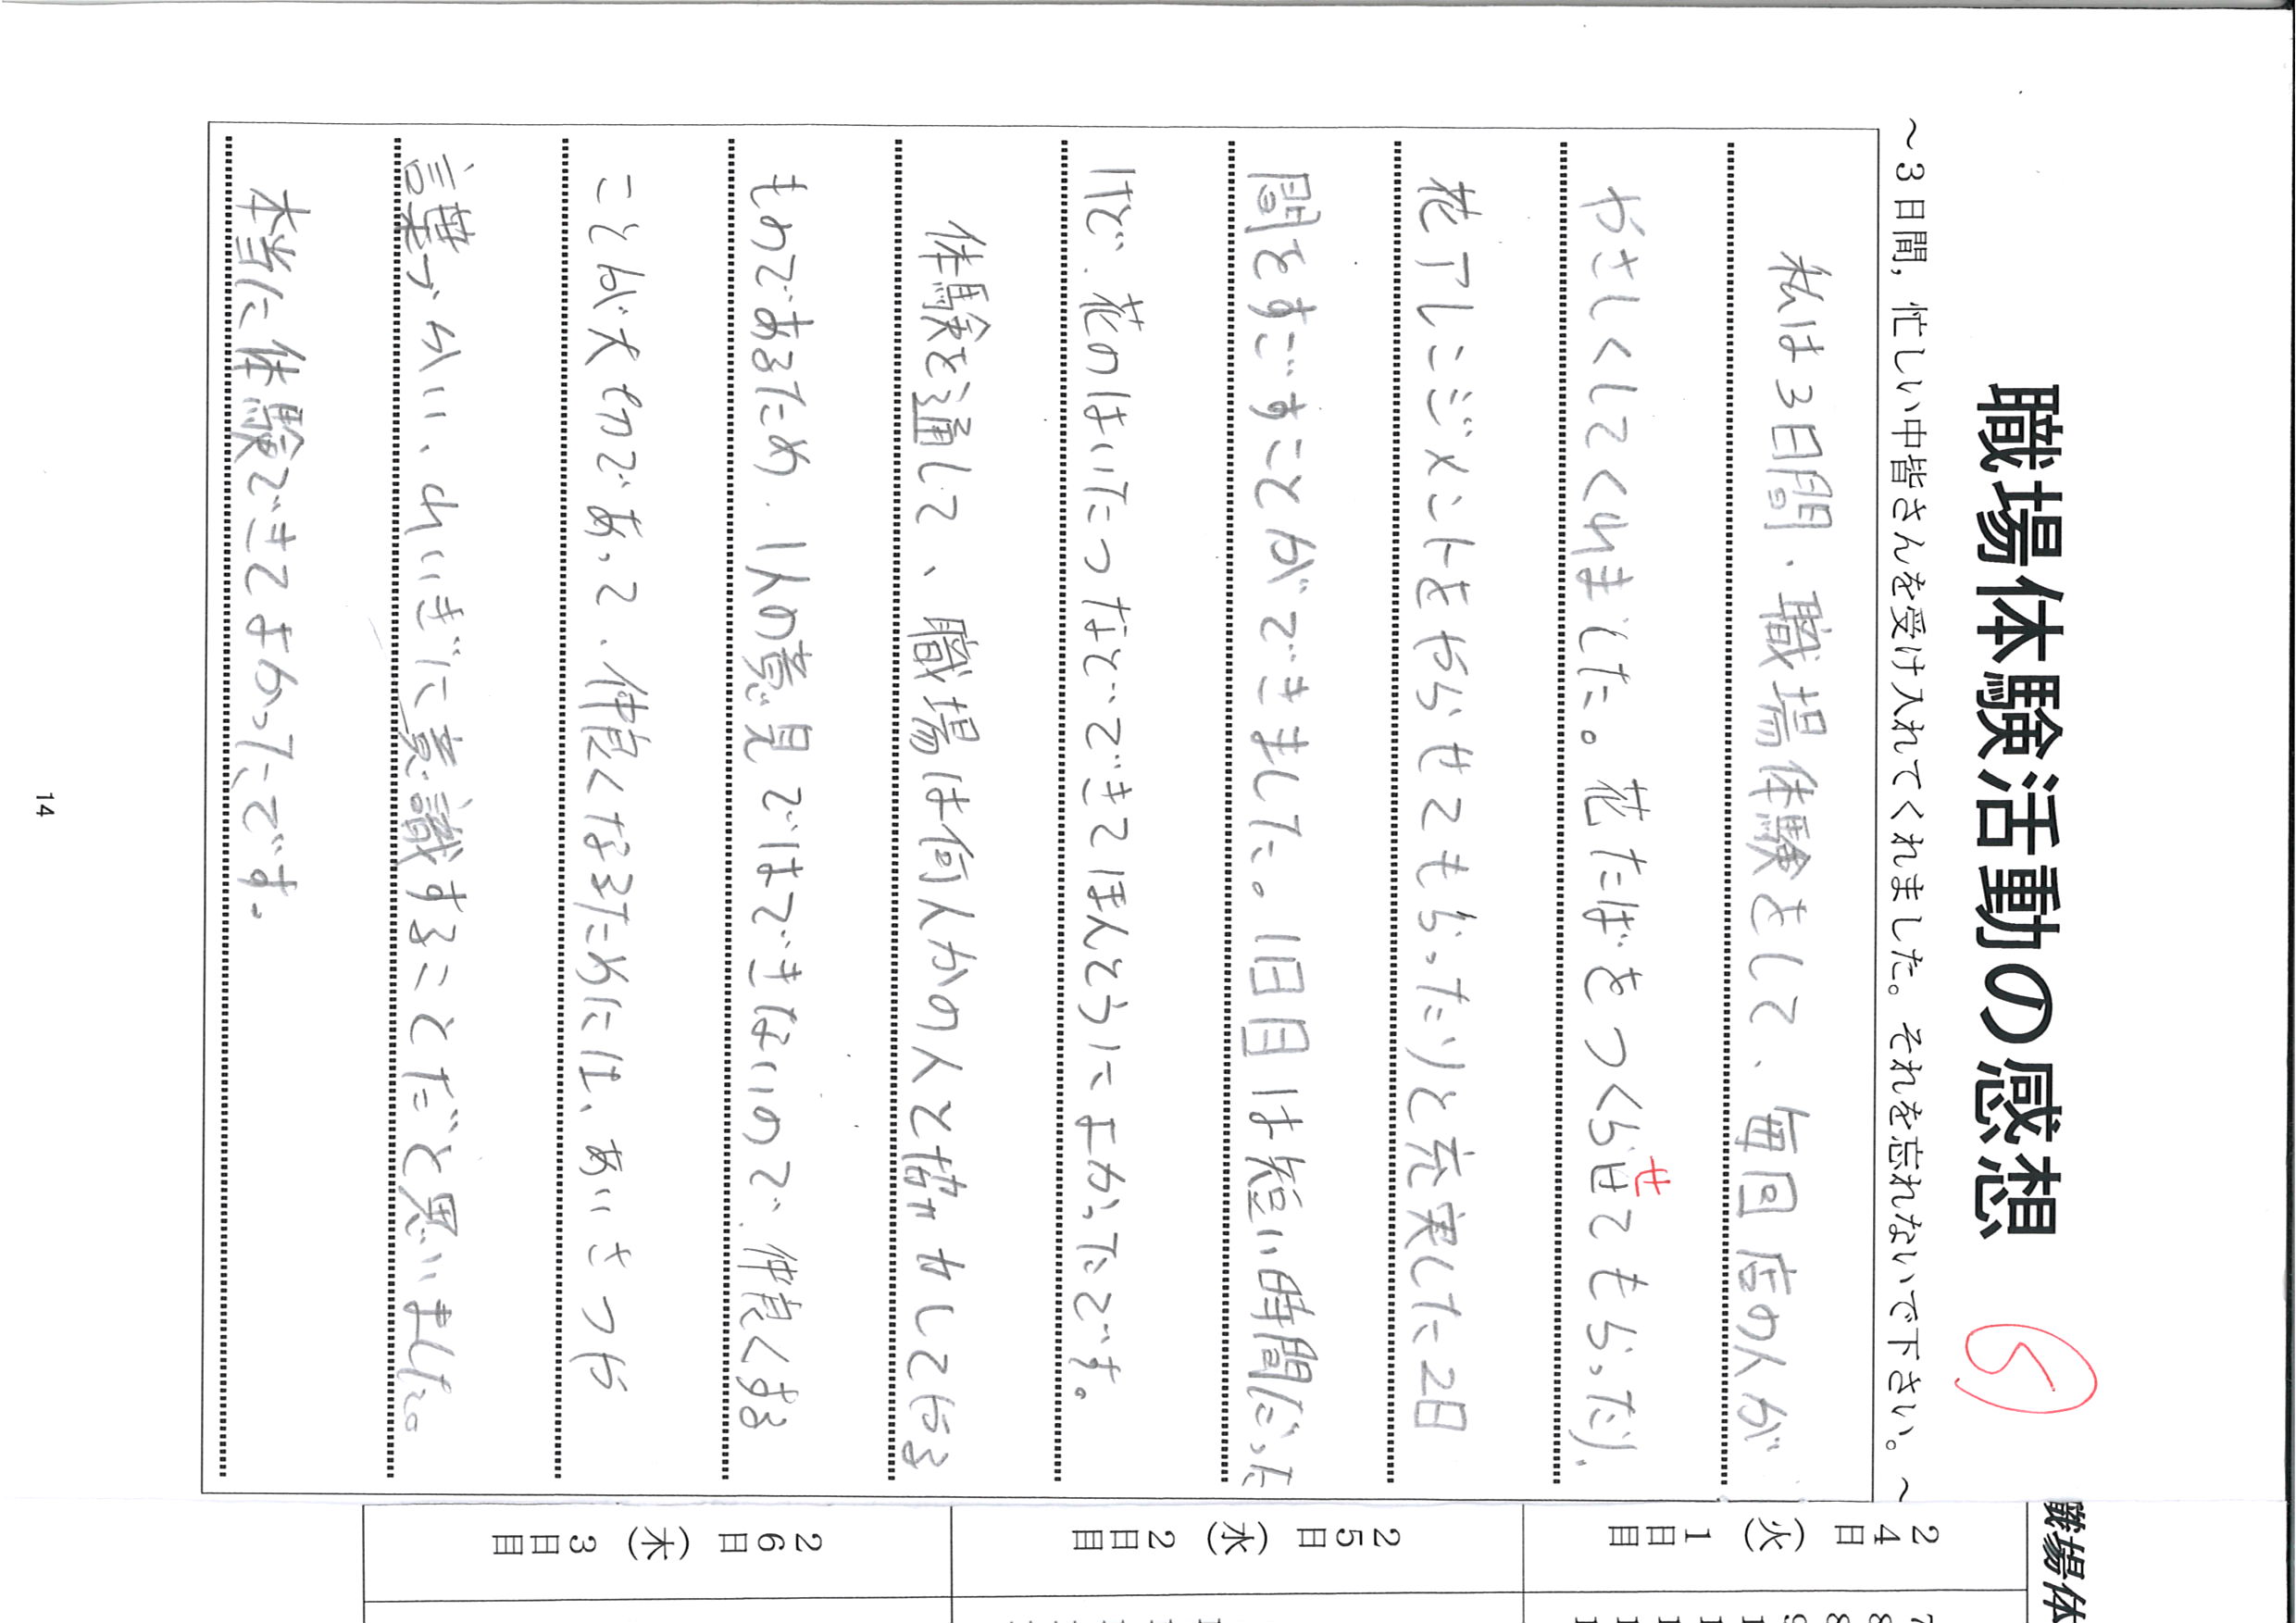 職場体験活動の感想
⑤
～3日間，忙しい中皆さんを受け入れてくれました。それを忘れないで下さい。～
私は3日間、職場体験をして、毎回店の人が
やさしくしてくれました。花たばをつくらせてもらったり、
せ
花アレンジメントをやらせてもらったりと充実した2日
間をすごすことができました。1日目は短い時間だった
けど、花のはいたつなどできてほんとうによかったです。
体験を通して、職場は何人かの人と協力してやる
ものであるため、1人の意見ではできないので、仲良くする
ことが大切であって、仲良くなるためには、あいさつや
言葉づかい、れいぎに意識することだと思いました。
本当に体験できてよかったです。
14
職場体
24日（火）
1日目
25日（水）
2日目
26日（木）
3日目